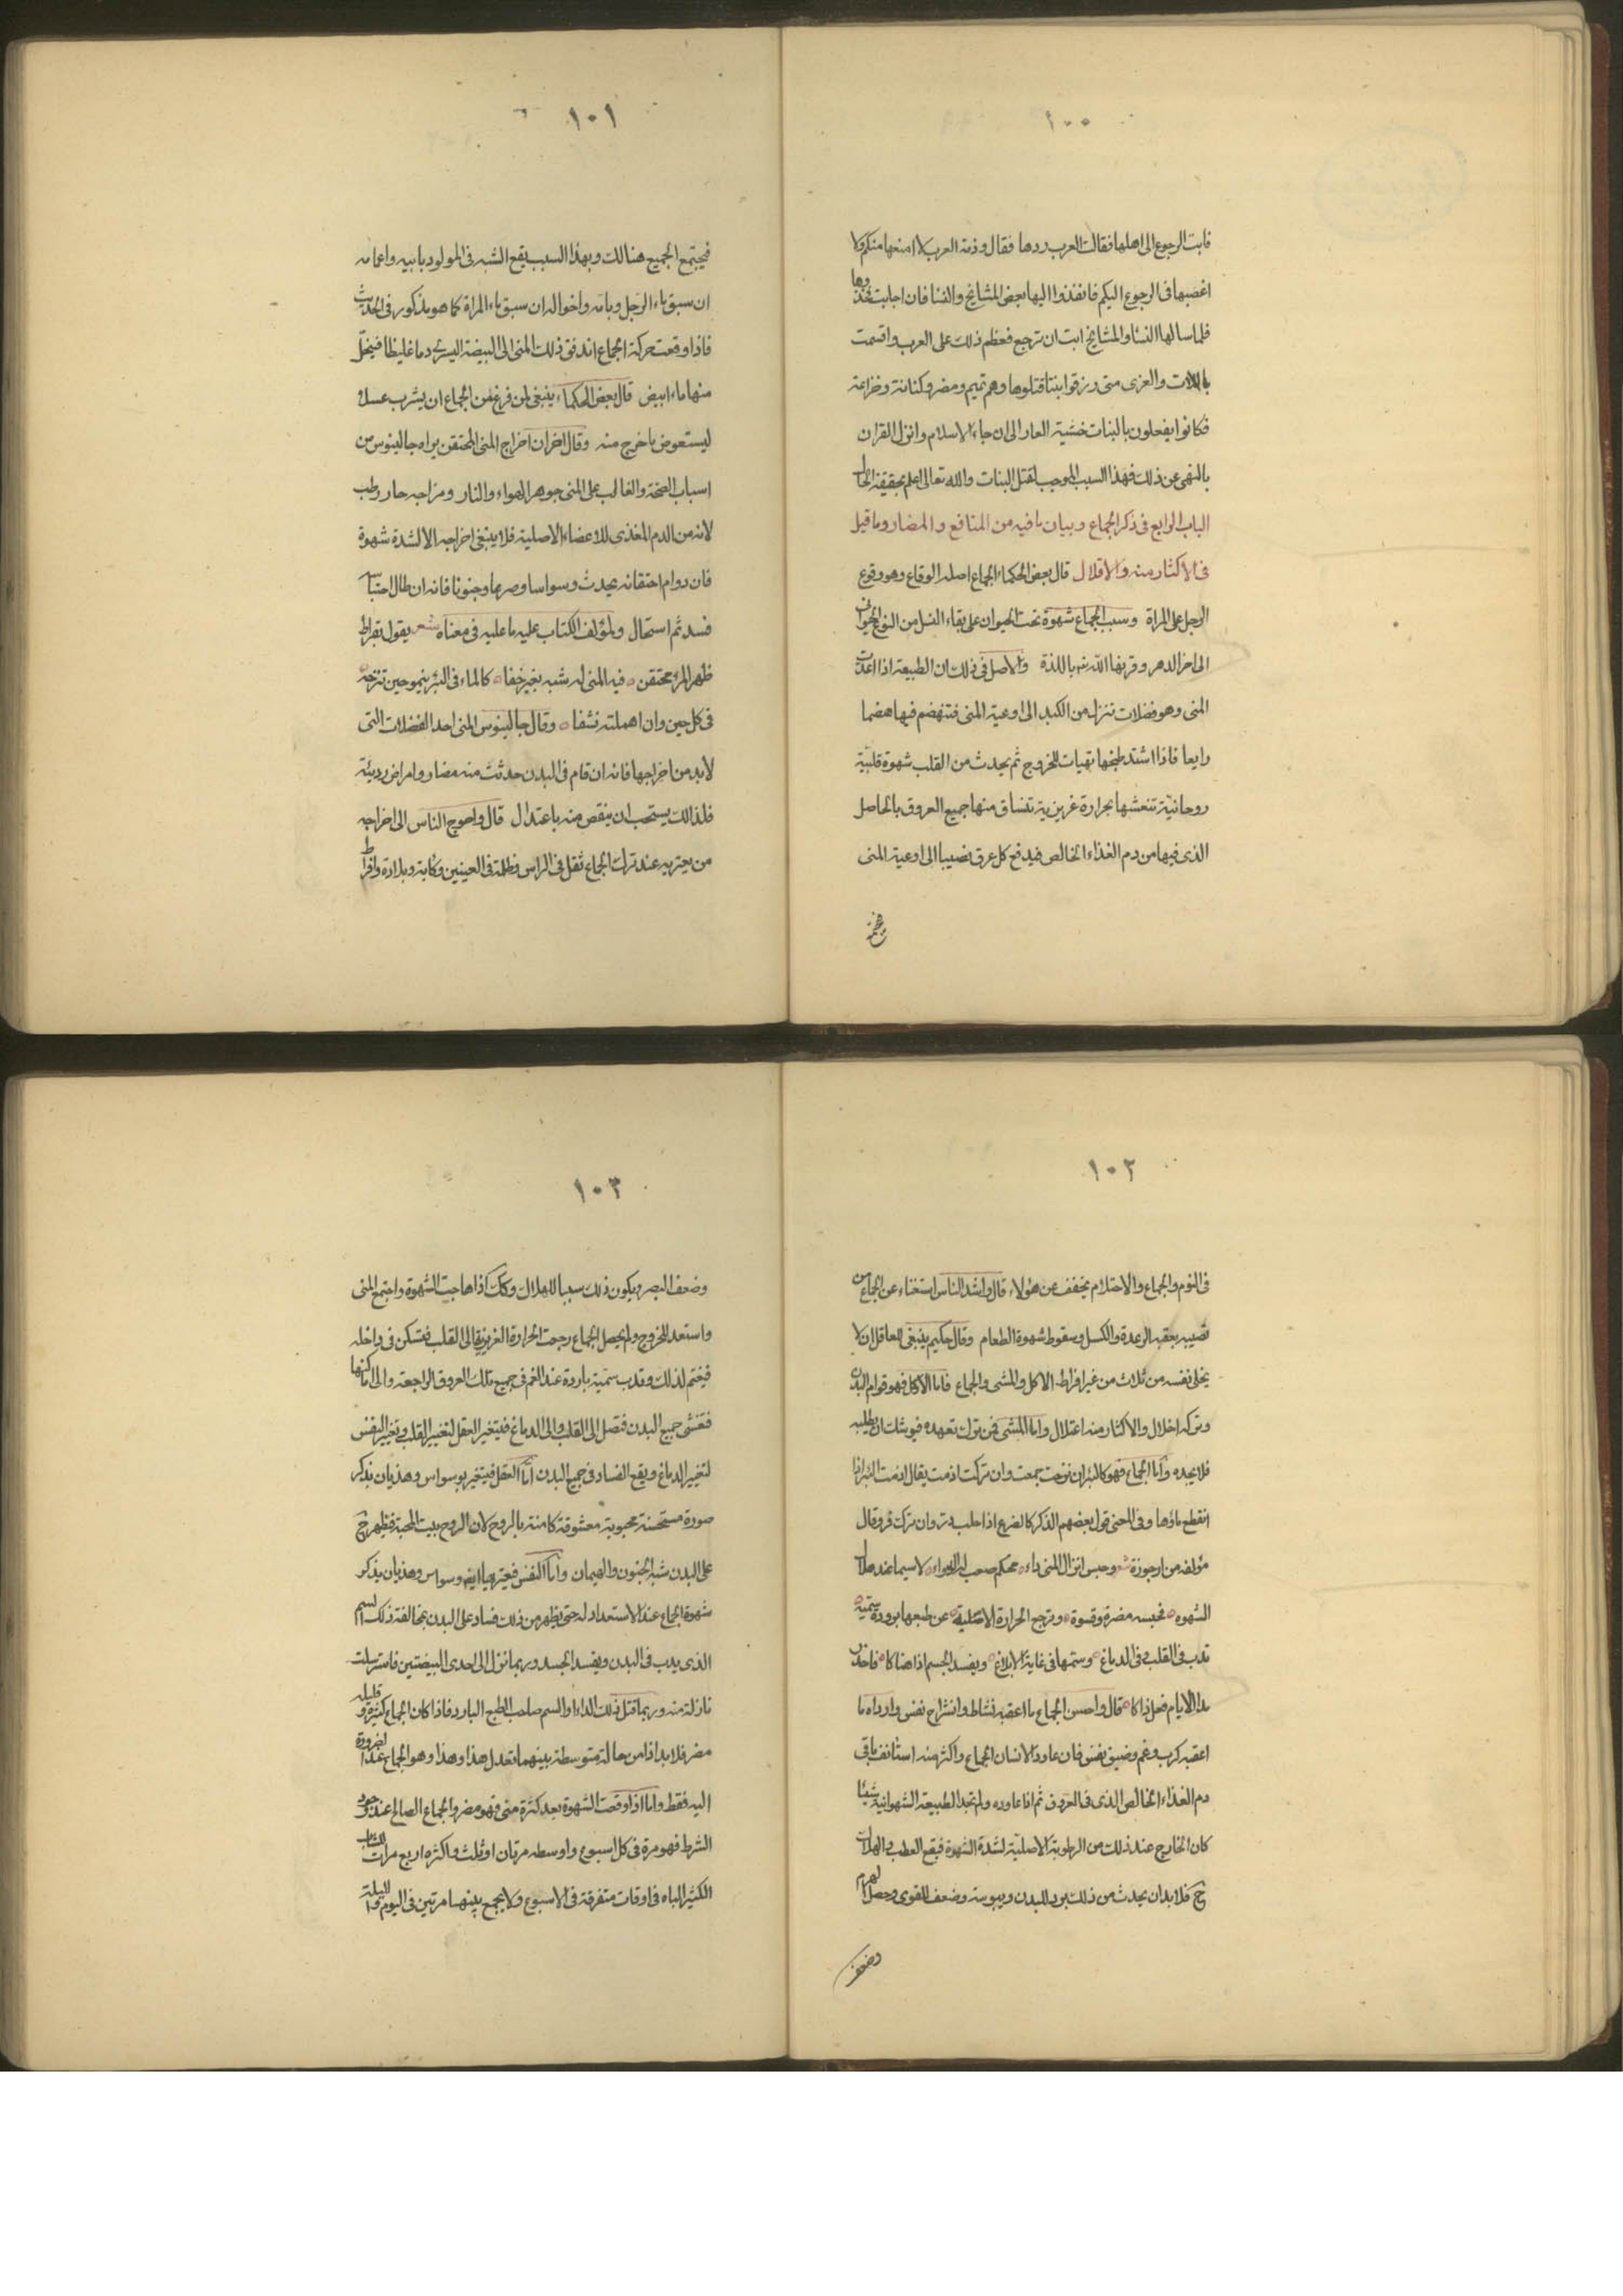 ١٠٠
فابت الرجوع الى اهلها فقالت العرب ردها فقال وذمة العرب لا امنعها منكم ولا
اغصبها فى الرجوع اليكم فانفذوا اليها بعض المشائخ والنسا فان اجابت فخذوها
فلما سالها النسا والمشايخ ابت ان ترجع فعظم ذلك على العرب واقسمت
باللات والعزى متى رزقوا بنتا قتلوها وهم تميم ومضر وكنانة وخزاعة
فكانوا يفعلون بالبنات خشية العار الى ان جاء الاسلام وانزل القران
بالنهى عن ذلك فهذا السبب الموجب لقتل البنات والله تعالى اعلم بحقيقة الحال
الباب الرابع فى ذكر الجماع وبيان ما فيه من المنافع والمضار وما قيل
فى الاكثار منه والاقلال قال بعض الحكماء الجماع اصله الوقاع وهو وقوع
الرجل على المراة وسبب الجماع شهوة تحث الحيوان على بقاء النسل من النوع الحيوانى
الى اخر الدهر وقرنها الله باللذة والاصل فى ذلك ان الطبيعة اذا اعدت
المنى وهو فضلات تنزل من الكبد الى اوعية المنى فتنهضم فيها هضما
رابعا فاذا اشتد طبخها تهيات للخروج ثم يحدث من القلب شهوة قلبية
روحانية تنعشها بحرارة غريزية تنساق منها جميع العروق بالحاصل
الذى فيها من دم الغذاء الخالص فيدفع كل عرق نصيبا الى اوعية المنى
١٠١
فيجتمع الجميع هنالك وبهذا السبب يقع الشبه فى المولود بابيه واعمامه
ان سبق ماء الرجل وبامه واخواله ان سبق ماء المراة كما هو مذكور فى الحديث
فاذا وقعت حركة الجماع اندفق ذلك المنى الى البيضة اليسرى دما غليظا فيتحل
منها ماء ابيض قال بعض الحكماء ينبغى لمن فرغ من الجماع ان يشرب عسلا
ليستعوض ما خرج منه وقال اخران اخراج المنى المحتقن يراه جالينوس من
اسباب الصحة والغالب على المنى جوهر الهواء والنار ومزاجه حار رطب
لانه من الدم المغذى للاعضاء الاصلية فلا ينبغى اخراجه الا لشدة شهوة
فان دوام احتقانه يحدث وسواسا وصرعا وجنونا فانه ان طال احتباسه
فسد ثم استحال ولمؤلف الكتاب عليه ما عليه فى معناه شعر يقول بقراط
ظهر المرء محتقن فيه المنى له شبه بغير خفا كالماء فى البئر ينمو حين تنزحه
فى كل حين وان اهملته نشفا وقال جالينوس المنى احد الفضلات التى
لابد من اخراجها فانه ان قام فى البدن حدثت منه مضار وامراض رديئة
فلذلك يستحب ان ينقص منه باعتدال قال واحوج الناس الى اخراجه
من يعتريه عند ترك الجماع ثقل فى الراس وظلمة فى العينين وكابة وبلادة وافراط
١٠٢
فى النوم والجماع والاحتلام يخفف عن هؤلاء قال واشد الناس استغناء عن الجماع من
تصيبه بعقبه الرعدة والكسل وسقوط شهوة الطعام وقال حكيم ينبغى للعاقل ان لا
يخلى نفسه من ثلاث من غير افراط الاكل والمشى والجماع فاما الاكل فهو قوام البدن
وتركه اخلال والاكثار منه اعتلال واما المشى فمن ترك تعهده فيوشك ان يطلبه
فلا يجده واما الجماع فهو كالبئر ان نزحت جمعت وان تركت اذمت يقال اذمت البئر اذا
انقطع ماؤها وفى المعنى قول بعضهم الذكر كالضرع اذا حلب در وان ترك قر وقال
مؤلفه من ارجوزة شعر وحبس انزال المنى داء محكم صعب له الدواء لاسيما عند هيجان
الشهوه فحبسه مضرة وقسوة وترجع الحرارة الاصلية عن طبعها برودة سمية
تدب فى القلب وفى الدماغ وسمها فى غاية الابلاغ ويفسد الجسم اذا هناكا فاحذر
مدا الايام فعل ذاكا قال واحسن الجماع ما اعقبه نشاط وانشراح نفس وارداه ما
اعقبه كرب وغم وضيق نفس فان عاود الانسان الجماع واكثر منه استانف باقى
دم الغذاء الخالص الذى فى العروق ثم اذا عاوده ولم تجد الطبيعة الشهوانية شيئا
كان الخارج عند ذلك من الرطوبة الاصلية لشدة الشهوة فيقع العطب والهلاك
ح فلابد ان يحدث من ذلك برد للبدن ويبوسة وضعف للقوى وحصل الهرم
وضعف
١٠٣
وضعف البصر ويكون ذلك سببا للهلاك وكك اذا هاجت الشهوة واجتمع المنى
واستعد للخروج ولم يحصل الجماع رجعت الحرارة الغريزية الى القلب فتسكن فى داخله
فيغتم لذلك وتدب سمية باردة عند الغم فى جميع تلك العروق الراجعة والى اماكنها
فتغشى جميع البدن فتصل الى القلب والى الدماغ فيتغير العقل لتغيير القلب وتغيير النفس
لتغيير الدماغ ويقع الفساد فى جميع البدن اما العقل فيتغير بوسواس وهذيان بذكر
صورة مستحسنة محبوبة معشوقة كامنة بالروح لان الروح بيت المحبة فيظهر ح
على البدن شبه الجنون والهيمان واما النفس فيعتريها ايضا وسواس وهذيان بذكر
شهوة الجماع عند الاستعداد له حتى يظهر من ذلك فساد على البدن بمخالفة ذلك السم
الذى يدب فى البدن ويفسد الجسد وربما نزل الى احدى البيضتين فاسترسلت
نازلة منه وربما قتل ذلك الداء او السم صاحب الطبع البارد فاذا كان الجماع كثيره وقليله
مضر فلابد اذا من حالة متوسطة بينهما تعدل هذا وهذا وهو الجماع عند الضرورة
اليه فقط واما اذا وقعت الشهوة بعد كثرة منى فهو مضر والجماع الصالح عند وجود
الشرط فهو مرة فى كل اسبوع واوسطه مرتان او ثلث واكثره اربع مرات للشاب
الكثير الباه فى اوقات متفرقة فى الاسبوع ولا يجمع بينهما مرتين فى اليوم والليلة